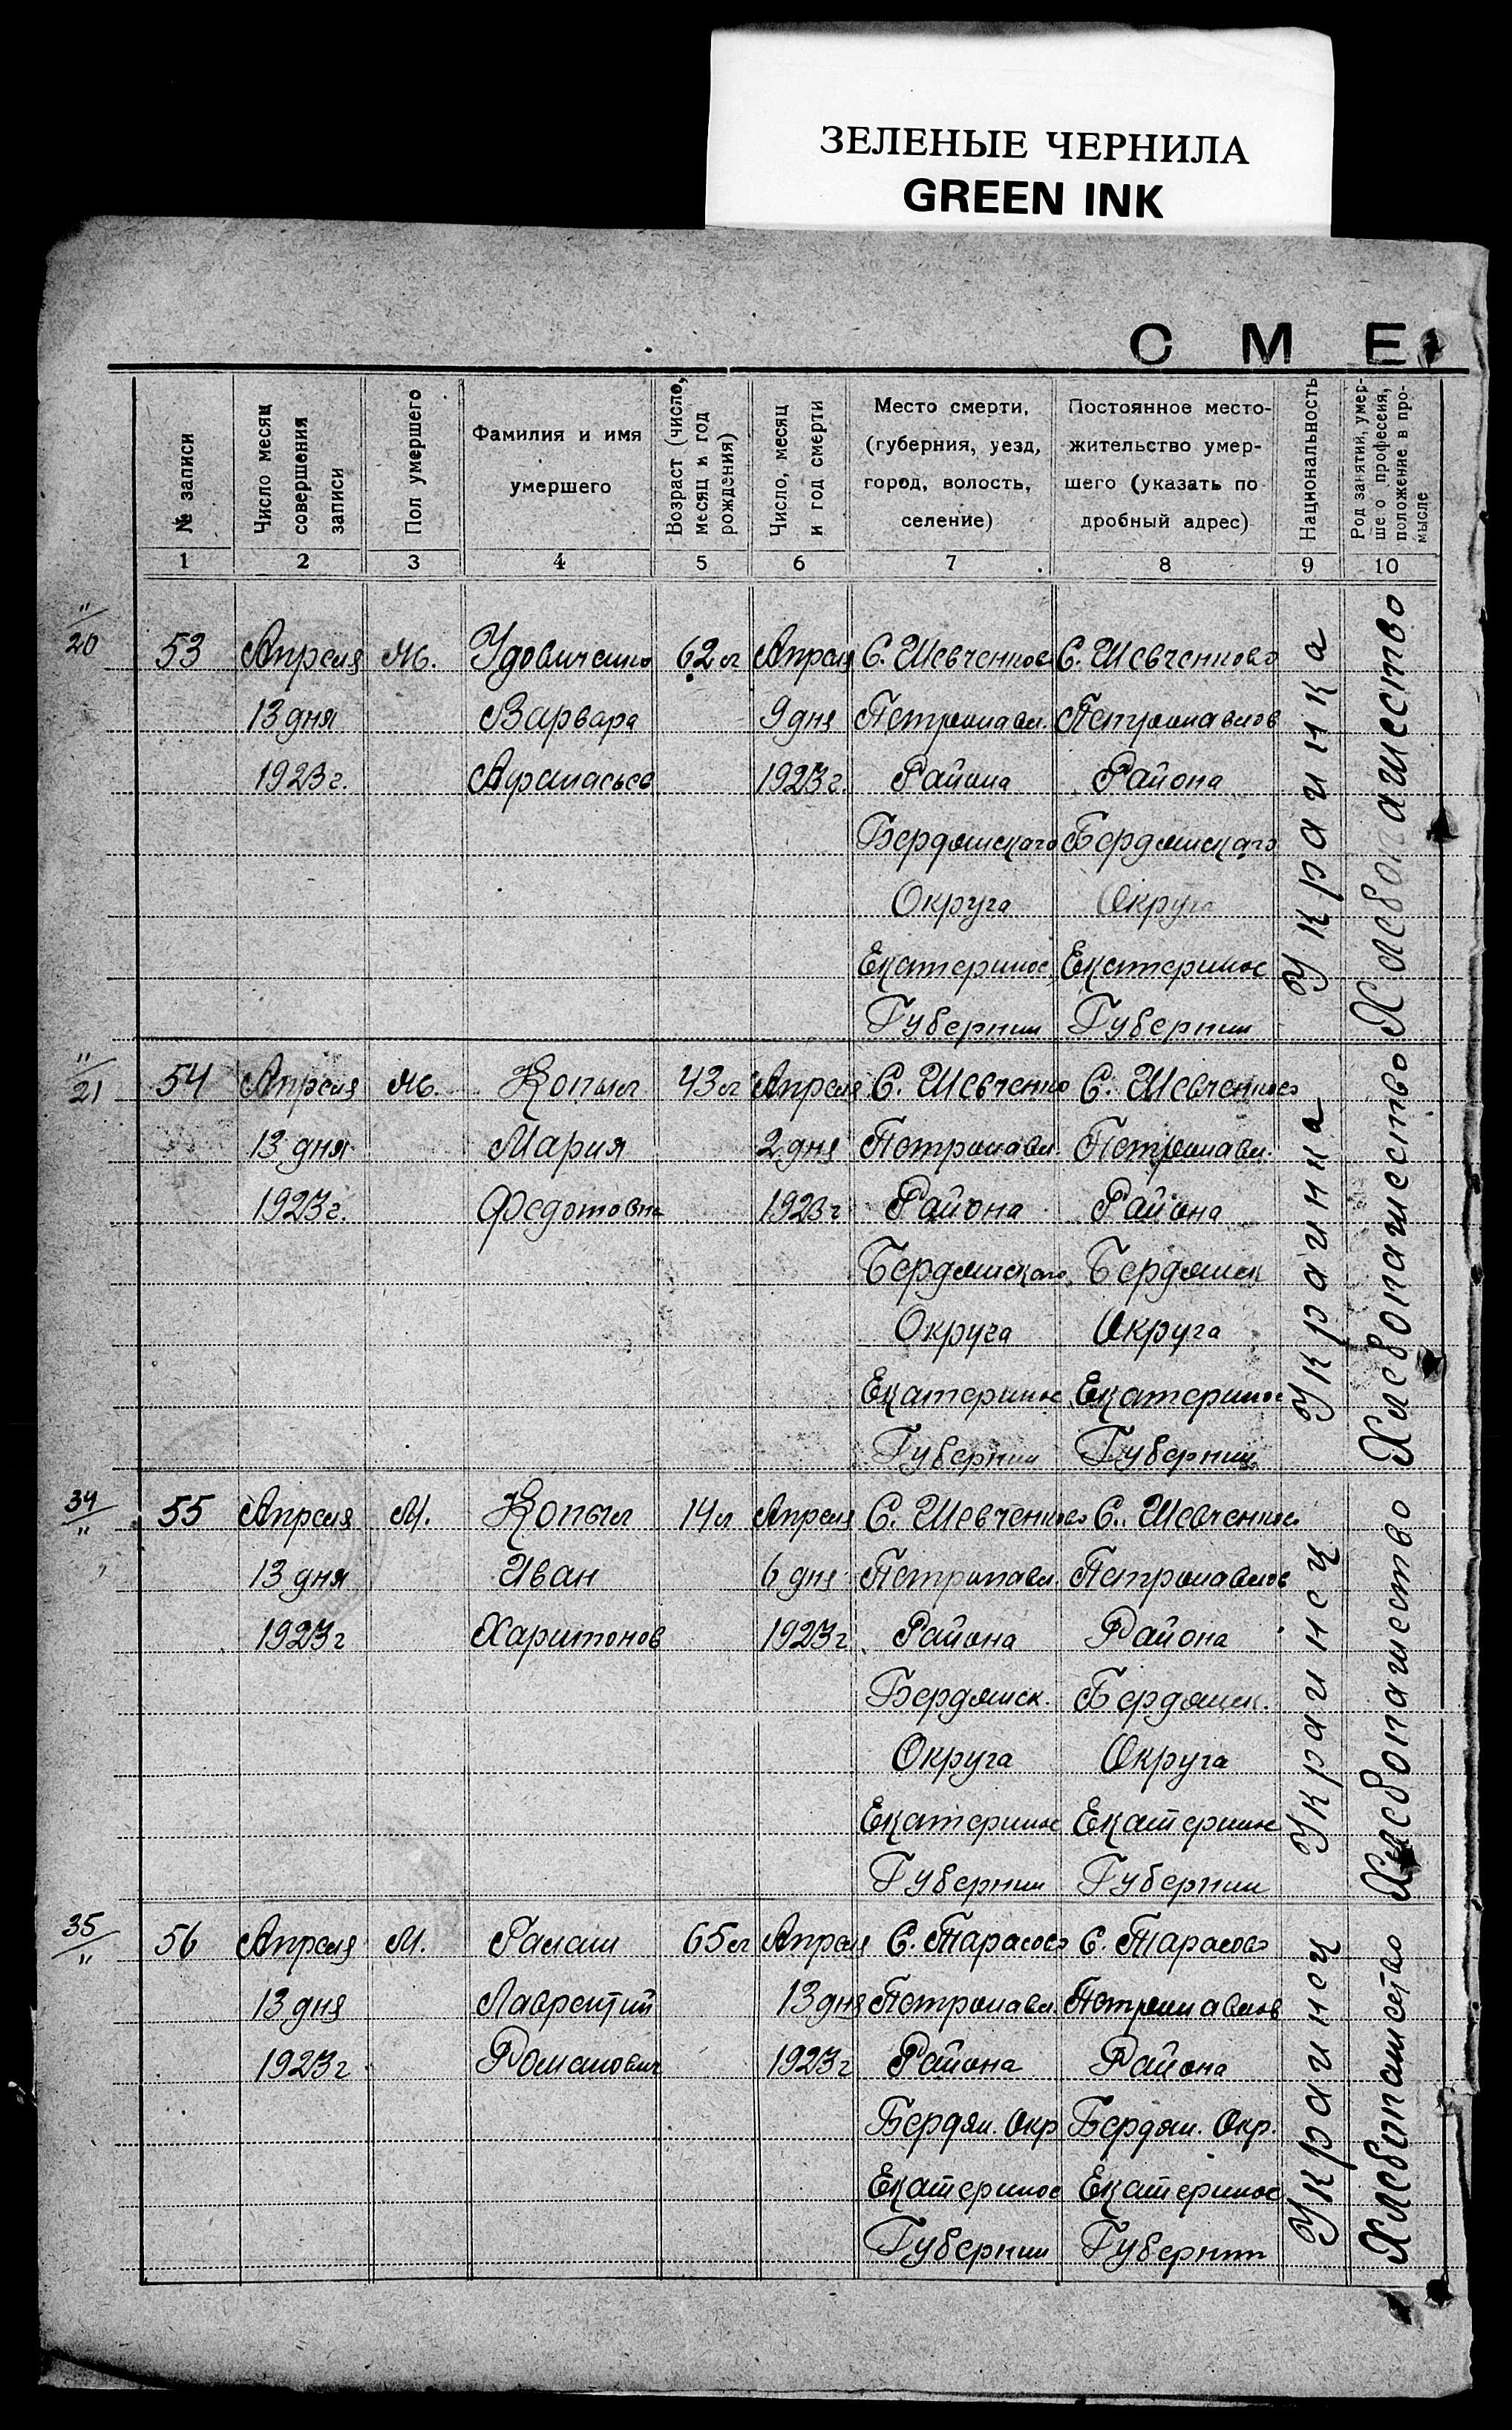 ЗЕЛЕНЫЕ ЧЕРНИЛА
GREEN INK
С М Е
№ записи
Число месяц совершения записи
Пол умершего
Фамилия и имя умершего
Возраст (число, месяц и год рождения)
Число, месяц и год смерти
Место смерти, (губерния, уезд, город, волость, селение)
Постоянное местожительство умершего (указать подробный адрес)
Национальность
Род занятий, умерше о профессия, положение в промысле
1 2 3 4 5 6 7 8 9 10
"/20 53 Апреля Ж. Удовиченко 62 л Апреля С. Шевченково С. Шевченково Украинка Хлебопашество
13 дня Варвара 9 дня Петропавл. Петропавлов
1923 г. Афанасьев 1923 г. Района Района
Бердянскаго Бердянскаго
Округа Округа
Екатеринос Екатеринос
Губернии Губернии
"/21 54 Апреля Ж. Копыл 43 л Апреля С. Шевченко С. Шевченково Украинка Хлебопашество
13 дня Мария 2 дня Петропавл. Петропавл.
1923 г. Федотовна 1923 г Района Района
Бердянскаго Бердянск
Округа Округа
Екатеринос Екатеринос
Губернии Губернии
34/" 55 Апреля М. Копыл 14 л Апреля С. Шевченково С. Шевченково Украинец Хлебопашество
13 дня Иван 6 дня Петропавл. Петропавлов
1923 г Харитонов 1923 г Района Района
Бердянск. Бердянск.
Округа Округа
Екатеринос Екатеринос
Губернии Губернии
35/" 56 Апреля М. Галаш 65 л Апреля С. Тарасово С. Тарасово Украинец Хлебопашество
13 дня Лаврентий 13 дня Петропавл. Петропавлов
1923 г Романович 1923 г Района Района
Бердян. Окр Бердян. Окр.
Екатеринос Екатеринос
Губернии Губернии